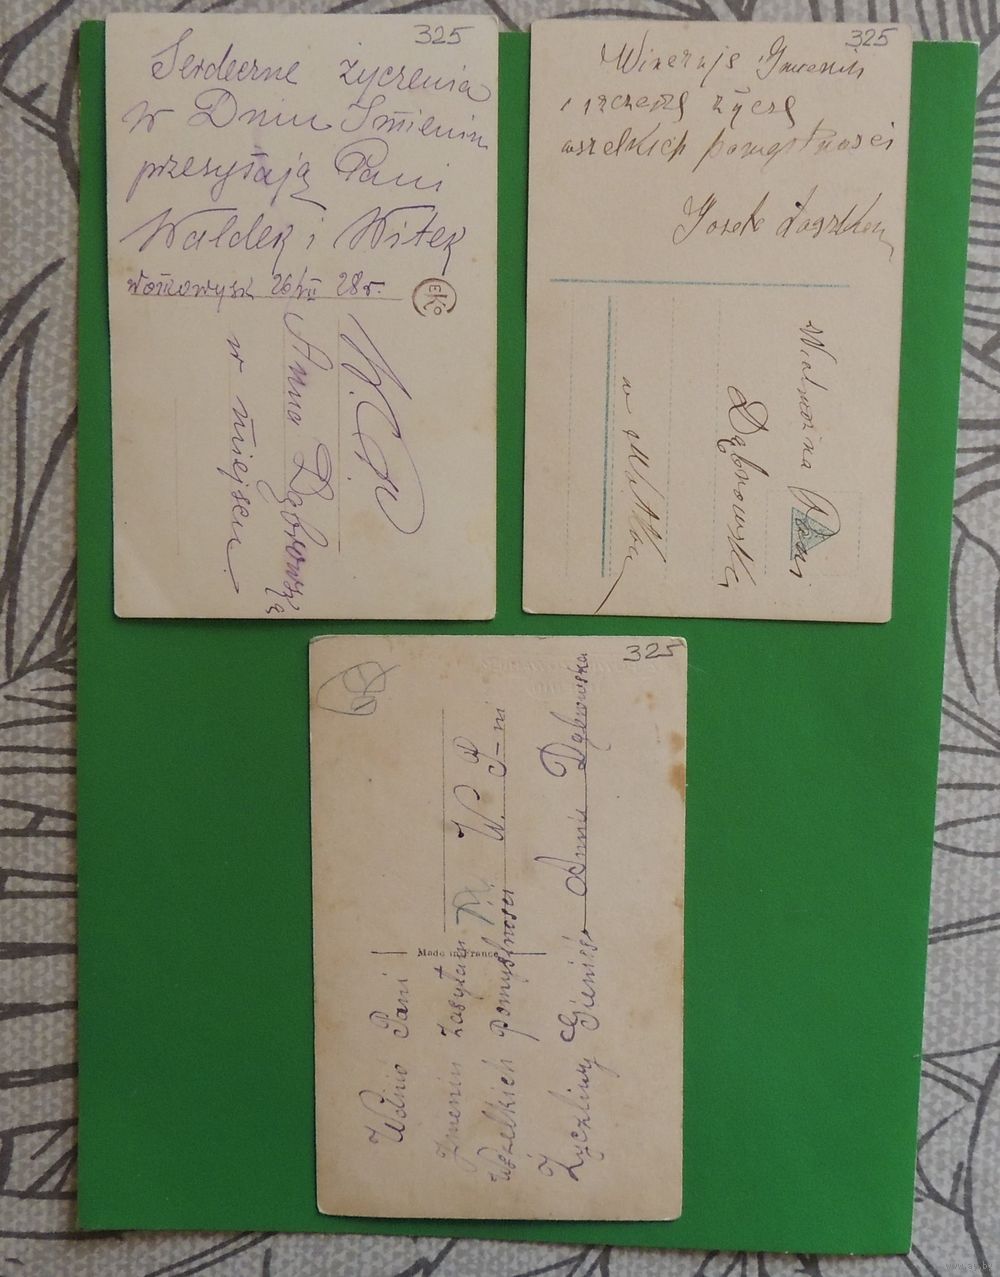 325
Serdeczne życzenia
w Dniu Imienin
przesyłają Pani
Waldek i Witek
Wołkowysk 26/VII 28 r.
EKO
W. P.
Anna Dąbrowska
w miejscu
325
Winszuję Imienin
i szczęścia życzę
wszelkich pomyślności
Wielmożna Pani
Dąbrowska
w
325
Pani
Imienin zasyłam
Wszelkich pomyślności
Życzliwy
Made in France
W. P.
P-ni
Anna Dąbrowska
www.ay.by